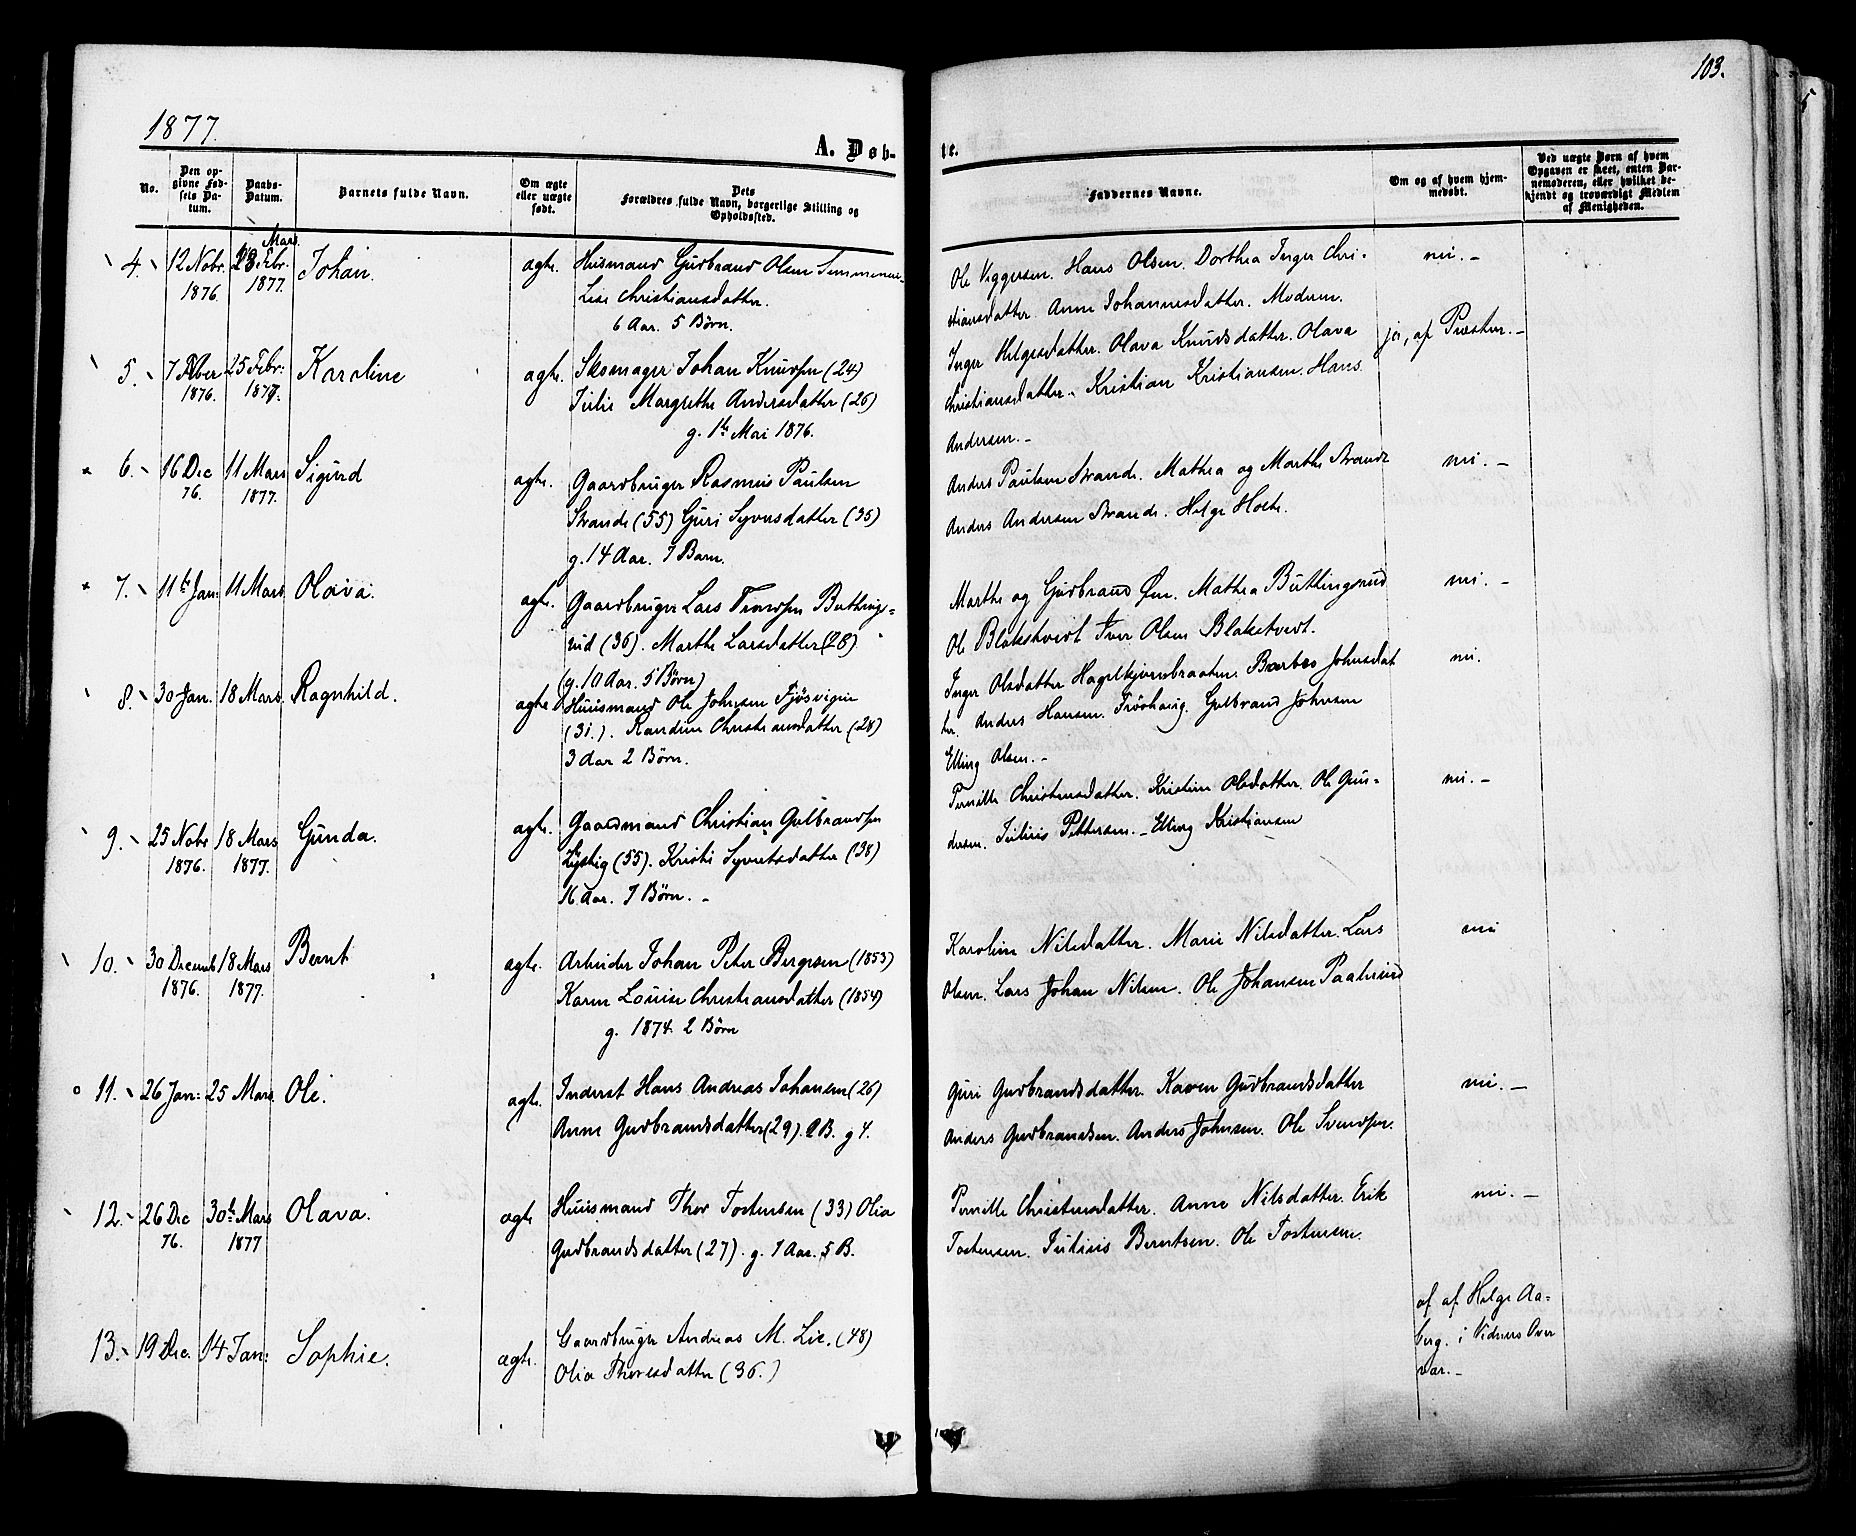 103.
1877.
A. Døb-
te.
No.
Den op-
givne Fød-
sels Da-
tum.
Daabs-
Datum.
Barnets fulde Navn.
Om ægte
eller uægte
født.
Dets
Forældres fulde Navn, borgerlige Stilling og
Opholdssted.
Faddernes Navne.
Om og af hvem hjem-
medøbt.
Ved uægte Børn af hvem
Opgaven er skeet, enten Bar-
nemoderen, eller hvilket be-
kjendt og troværdigt Medlem
af Menigheden.
4. 12 Nobr. 1876. Mars 1877. Johan. ægte.
Husmand Gudbrand Olsen
Lise Christiansdatter.
6 Aar. 5 Børn.
Ole Viggersen. Hans Olsen. Dorthea Inger Chri-
stiansdatter. Anne Johannesdatter. Moderen.
nei. -
5. 7 1876. 25 Febr: 1877. Karoline ægte.
Skomager Johan Knudsen (24)
Julie Margrethe Andersdatter (26)
g. 1te Mai 1876.
Inger Helgesdatter. Olava Knudsdatter. Olava
Christiansdatter. Kristian Kristiansen. Hans
Andersen. -
ja, af Præsten. -
6. 16 Dec 76. 11 Mars 1877. Sigurd ægte.
Gaardbruger Rasmus Paulsen
Strande (55) Guri Syversdatter (35)
g. 14 Aar. 7 Barn.
Anders Paulsen Strande. Mathea og Marthe Strande
Anders Andersen Strande. Helge Holte.
nei. -
7. 11te Jan: 11 Mars Olava. ægte.
Gaardbruger Lars Trondsen Buttings-
rud (36). Marthe Larsdatter (28)
(g. 10 Aar. 5 Børn)
Marthe og Gudbrand Øen. Mathea Buttingsrud
Ole Blakstvedt Iver Olsen Blakstvedt.
nei. -
8. 30 Jan. 18 Mars. Ragnhild. ægte
Huusmand Ole Johnsen Fjøsvigen
(31.). Randine Christiansdatter (28)
3 Aar 2 Børn.
Inger Olsdatter Hagelkjernsbraaten. Barbro Johnsdat
ter. Anders Hansen. Frøshaug. Gulbrand Johnsen
Elling Olsen. -
nei.
9. 25 Nobr 1876. 18 Mars 1877. Gunda. ægte.
Gaardmand Christian Gulbrandsen
(55). Kristi Syvertsdatter (38)
16 Aar. 7 Børn. -
Pernille Christensdatter. Kristine Olsdatter. Ole Gun-
dersen. Julius Pettersen. - Elling Kristiansen
nei. -
10. 30 Decemb 1876. 18 Mars 1877. Bernt ægte.
Arbeider Johan Peter Bergesen (1853)
Karen Louise Christiansdatter (1854)
g. 1874. 2 Børn
Karoline Nilsdatter. Marie Nilsdatter. Lars
Olsen. Lars Johan Nilsen. Ole Johansen Paalerud
nei
11. 26 Jan: 25 Mars. Ole. ægte.
Inderst Hans Andreas Johansen (26)
Anne Gudbrandsdatter (29). 2 B. g 4.
Guri Gudbrandsdatter. Karen Gudbrandsdatter
Anders Gudbrandsen. Anders Johnsen. Ole Svendsen.
nei. -
12. 26 Dec 76. 30te Mars 1877 Olava. ægte
Huusmand Thor Tostensen (33) Olia
Gudbrandsdatter (27). g. 7 Aar. 5 B.
Pernille Christensdatter. Anne Nilsdatter. Erik
Tostensen. Julius Berntsen. Ole Tostensen.
nei. -
13. 19 Dec. 14 Jan: Sophie. ægte.
Gaardbruger Andreas M. Lie. (48)
Olia Thoresdatter (36.)
af af Helge Aa-
berg. i Vidners Over
vær. -